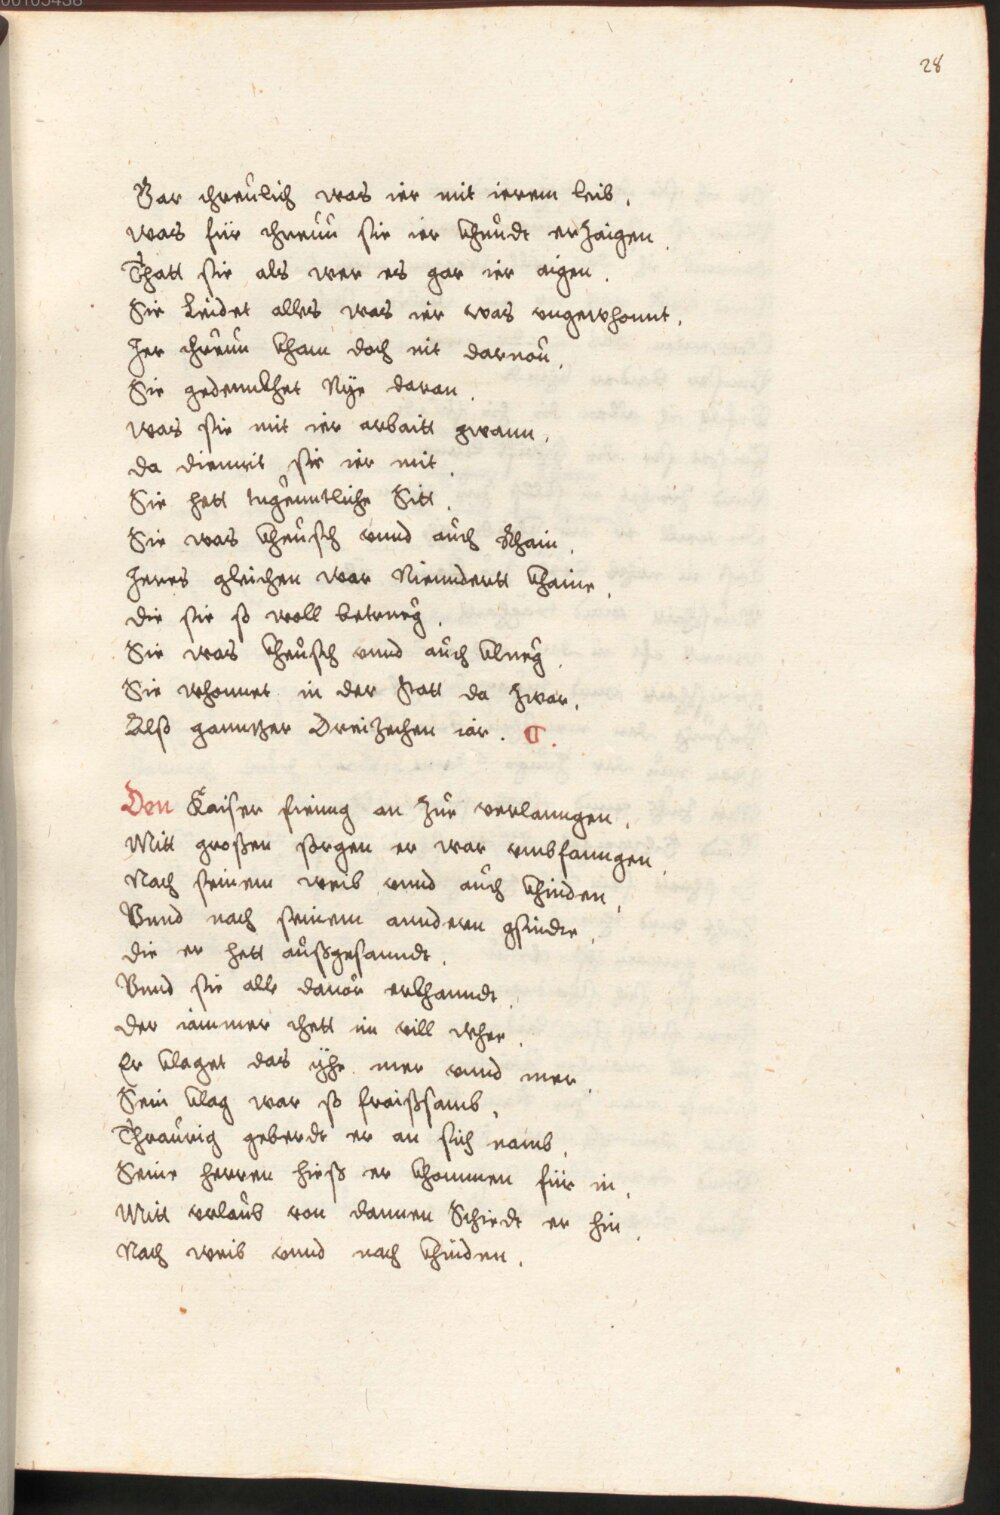 28
Gar threulich was ier mit ierem leib.
was für threuu sie ier khundt erzaigen.
Thatt sie als wer es gar ier aigen.
Sie Leidet alles was ier was vngewhonnt.
Jer threuu kham doch nit darnou.
Sie gedennkhet Nÿe daran.
was sie mit ier arbaitt gwann.
da diennet sie ier mit.
Sie hett tugenntliche Sitt.
Sie was kheusch vnnd auch Rhain.
Jeres gleichen war Nienndertt khaine.
die sie so woll betrueg.
Sie was kheusch vnnd auch klueg.
Sie whonnet in der Statt da zwar.
Alß ganntzer Dreizechen iar.
Den Kaiser fienng an zur verlanngen.
Mitt großen sorgen er war vmbfanngen.
Nach seinem weib vnnd auch khinden.
Vnnd nach seinem anndern gsinde.
die er hett außgesanndt.
Vnnd sie alle dauor erkhanndt.
der iammer thett im vill whee.
Er klaget das ÿhe mer vnnd mer.
Sein klag war so fraißsamb.
Thraurig geberdt er an sich namb.
Seine herren hieß er khommen für in.
Mitt vrlaub von dannen Schiedt er hin.
Nach weib vnnd nach khinden.